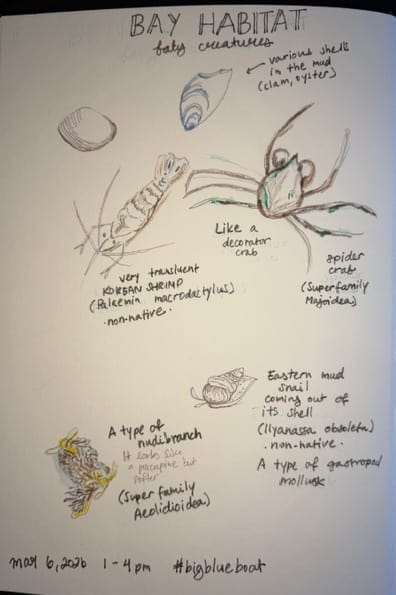 BAY HABITAT
baby creatures
various shells
in the mud
(clam, oyster)
Like a
decorator
crab
spider
crab
(Superfamily
Majoidea)
very translucent
KOREAN SHRIMP
(Palaemon macrodactylus)
• non-native •
Eastern mud
snail
coming out of
its shell
(Ilyanassa obsoleta)
• non-native •
A type of gastropod
mollusk
A type of
nudibranch
It looks like
a porcupine but
softer
(Superfamily
Aeolidioidea)
May 6, 2026 1-4pm #bigblueboat